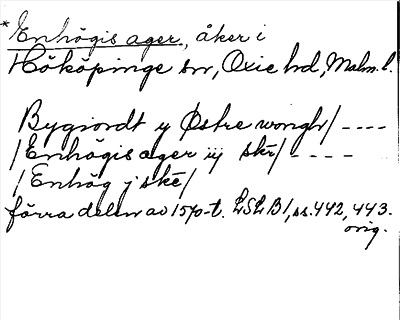 *Enhögis ager, åker i
Hököpinge sn, Oxie hd, Malm. l.
Bygiordt y Østre wongh/ ----
/Enhögis ager iij ske/ ----
/Enhög j ske/
förra delen av 1570-t. LSLB1, ss. 442, 443.
orig.